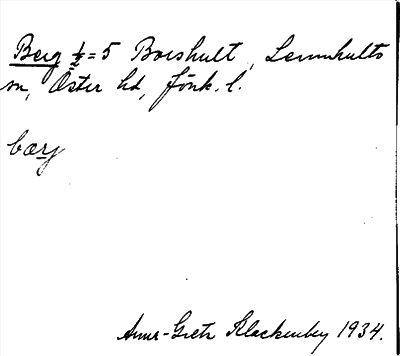 Berg ½=5 Boeshult, Lemnhults
sn, Öster hd, Jönk. l.
bærj
Anna-Greta Klackenberg 1934.